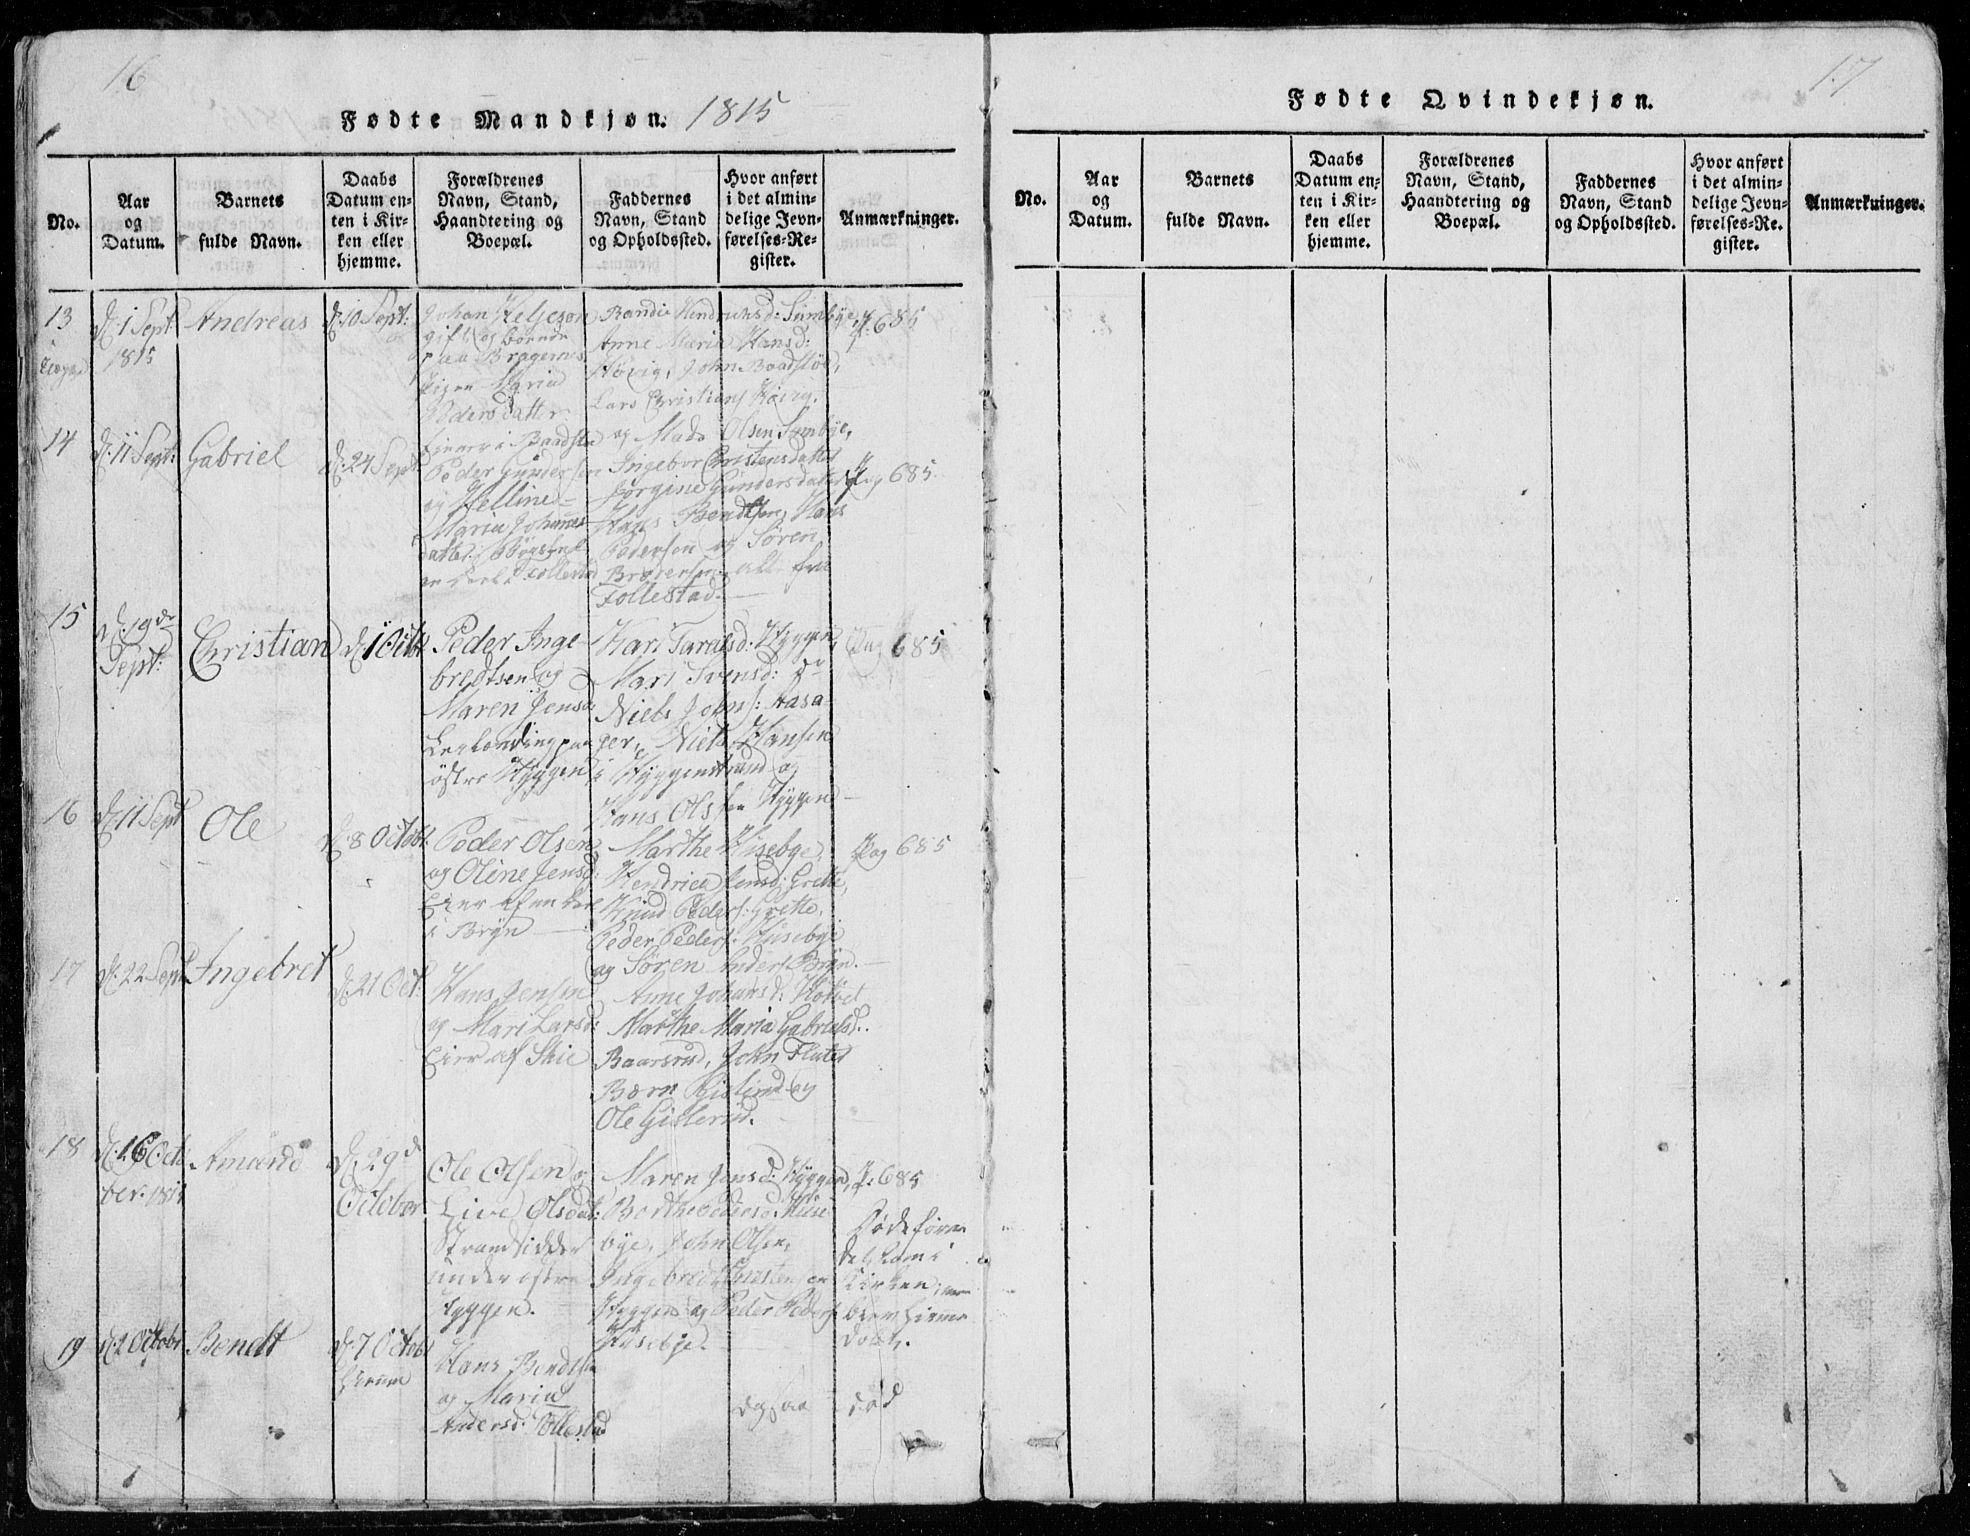 16
Fødte Mandkjøn. 1815
No.
Aar
og
Datum.
Barnets
fulde Navn.
Daabs
Datum en-
ten i Kir-
ken eller
hjemme.
Forældrenes
Navn, Stand,
Haandtering og
Boepæl.
Faddernes
Navn, Stand
og Opholdssted.
Hvor anført
i det almin-
delige Jevn-
førelses-Re-
gister.
Anmærkninger.
13
d: 1 Sept:
1815
Andreas
d: 10 Sept:
Johan Helgeson
gift og boende
paa Bragernes
Pigen Maria
Pedersdatter
Randie Hendrichsd: Sümbye,
Anne Maria Hansd:
Høvig, John Baadstøe,
Lars Christians Høvig.
og Mads Olsen Sümbye,
P. 685
14
d: 11 Sept:
Gabriel
d: 24 Sept
Peder
og Helline
Maria Johannes
datter
Follestad
Ingebor Christensdatter
Jørgine Gundersdatter
Hans Bendtsen, Hans
Pedersen og Søren
alle fra
Follestad.
Pag 685.
15
d: 19de
Sept:
Christian
d: 1 Octbr
Peder Inge-
bredtsen og
Maren Jensd:
Leylænding paa
østre Hyggen
Kari Taralsd: Hyggen,
Mari Svensd: do
Niels Johns: Aasa-
ger, Niels Hansen
i Hyggenstrand og
Hans Olsen Hyggen
Pag 685
16
d: 11 Sept
Ole
d: 8 Octobr:
Peder Olsen
og Oline Jensd:
i Bryn
Marthe Husebye,
Hendrica Jensd: Grette,
Knud Peders: Grette,
Peder Peders: Husebye
og Søren Anders: Bryn.
Pag 685
17
d: 22 Sept
Ingebret
d: 21 Oct:
Hans Jensen
og Mari Larsd:
Eier af Skie
Anne Johansd:
Marthe Maria Gabrielsd.
Baarsrud, John
og
Ole Gislerud.
18
d: 16 Octo
ber. 1815
Amund
d: 29d
October
Ole Olsen og
Live Olsdat:
Strandsidder
under østre
Hyggen.
Maren Jensd: Hyggen,
Berthe Pedersd: Huse
bye, John Olsen,
Ingebredt Christensen
Hyggen og Peder Peders:
Husebye.
P: 685
Døde føren
det kom i
Kirken,
blev hiemme
døbt.
19
d: 2 Octobr
Bendt
d: 7 Octobr
hiemme
Hans Bendtsen
og Maria
Andersd: Follestad
død
17
Fødte Qvindekjøn.
No.
Aar
og
Datum.
Barnets
fulde Navn.
Daabs
Datum en-
ten i Kir-
ken eller
hjemme.
Forældrenes
Navn, Stand,
Haandtering og
Boepæl.
Faddernes
Navn, Stand
og Opholdssted.
Hvor anført
i det almin-
delige Jevn-
førelses-Re-
gister.
Anmærkninger.